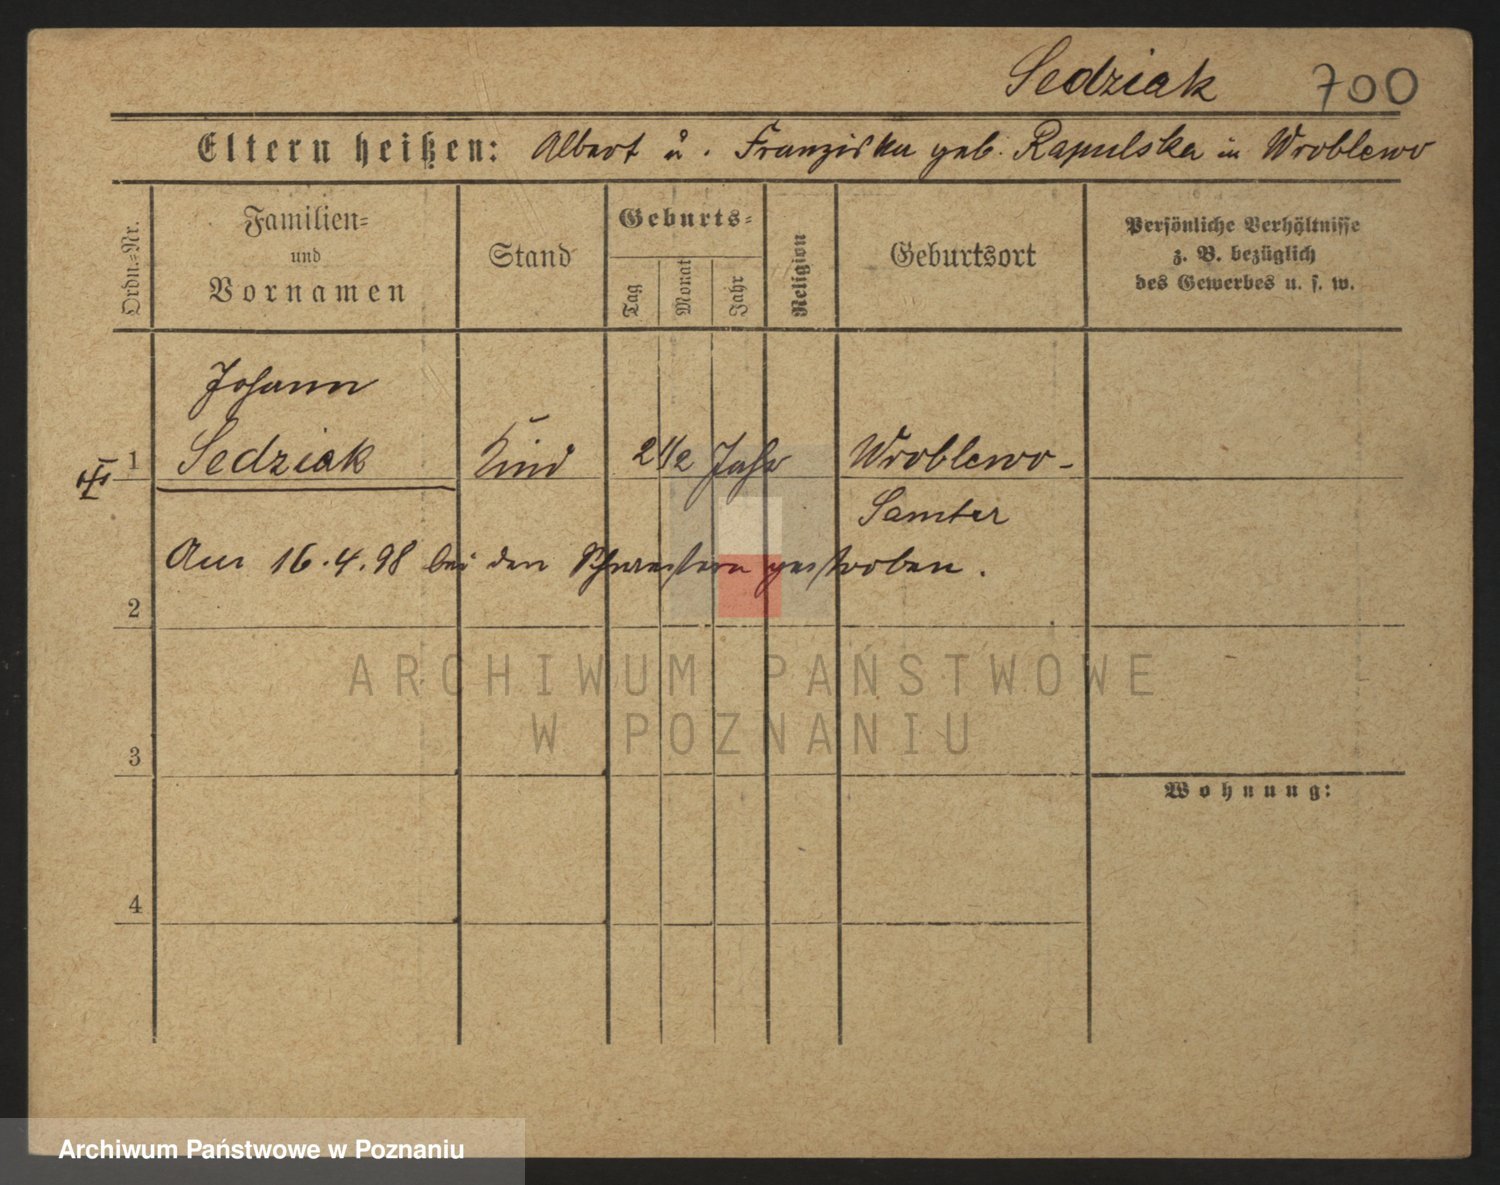 Sedziak 700
Eltern heißen: Albert u. Franziska geb. Rapulska in Wroblewo
Ordn.-Nr.
Familien-
und
Vornamen
Stand
Geburts-
Tag
Monat
Jahr
Religion
Geburtsort
Persönliche Verhältnisse
z. B. bezüglich
des Gewerbes u. s. w.
Johann
1 Sedziak Kind 2 1/2 Jahr Wroblewo-
Samter
Am 16.4.98 bei den Schwestern gestorben.
2
ARCHIWUM PAŃSTWOWE
W POZNANIU
3
Wohnung:
4
Archiwum Państwowe w Poznaniu